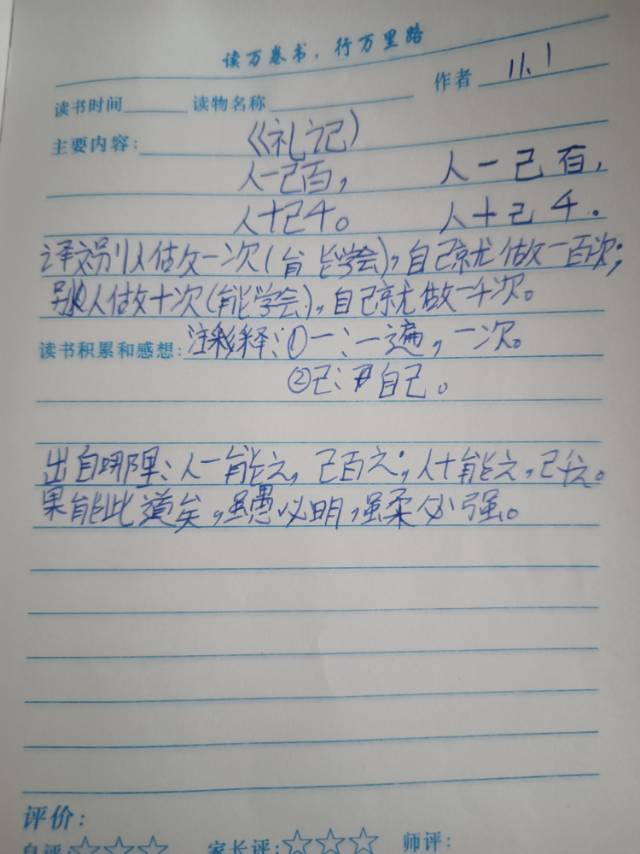 读万卷书，行万里路
读书时间 读物名称 作者 11.1
主要内容： 《礼记》
人一己百， 人一己百，
人十己千。 人十己千。
译文别人做一次(能学会)，自己就做一百次；
别人做十次(能学会)，自己就做一千次。
读书积累和感想：注释：①一：一遍，一次。
②己：自己。
出自哪里：人一能之，己百之；人十能之，己千之。
果能此道矣，虽愚必明，虽柔必强。
评价：
自评：☆☆☆ 家长评：☆☆☆ 师评：